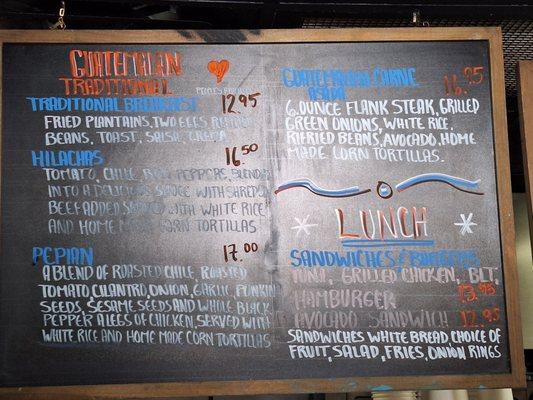 GUATEMALAN
TRADITIONAL
TRADITIONAL BREAKFAST 12.95
FRIED PLANTAINS, TWO EGGS
BEANS, TOAST, SALSA, CREMA
HILACHAS 16.50
TOMATO, CHILE, RED PEPPERS, BLENDED
INTO A DELICIOUS SAUCE WITH SHREDED
BEEF ADDED SERVED WITH WHITE RICE
AND HOME MADE CORN TORTILLAS
PEPIAN 17.00
A BLEND OF ROASTED CHILE, ROASTED
TOMATO CILANTRO, ONION, GARLIC, PUNKIN
SEEDS, SESAME SEEDS AND WHOLE BLACK
PEPPER & LEGS OF CHICKEN, SERVED WITH
WHITE RICE AND HOME MADE CORN TORTILLAS
GUATEMALAN CARNE
ASADA 16.95
6. OUNCE FLANK STEAK, GRILLED
GREEN ONIONS, WHITE RICE,
RIFRIED BEANS, AVOCADO, HOME
MADE CORN TORTILLAS.
LUNCH
SANDWICHES & BURGERS
TUNA, GRILLED CHICKEN, BLT.
HAMBURGER 13.95
AVOCADO SANDWICH 12.95
SANDWICHES WHITE BREAD CHOICE OF
FRUIT, SALAD, FRIES, ONION RINGS